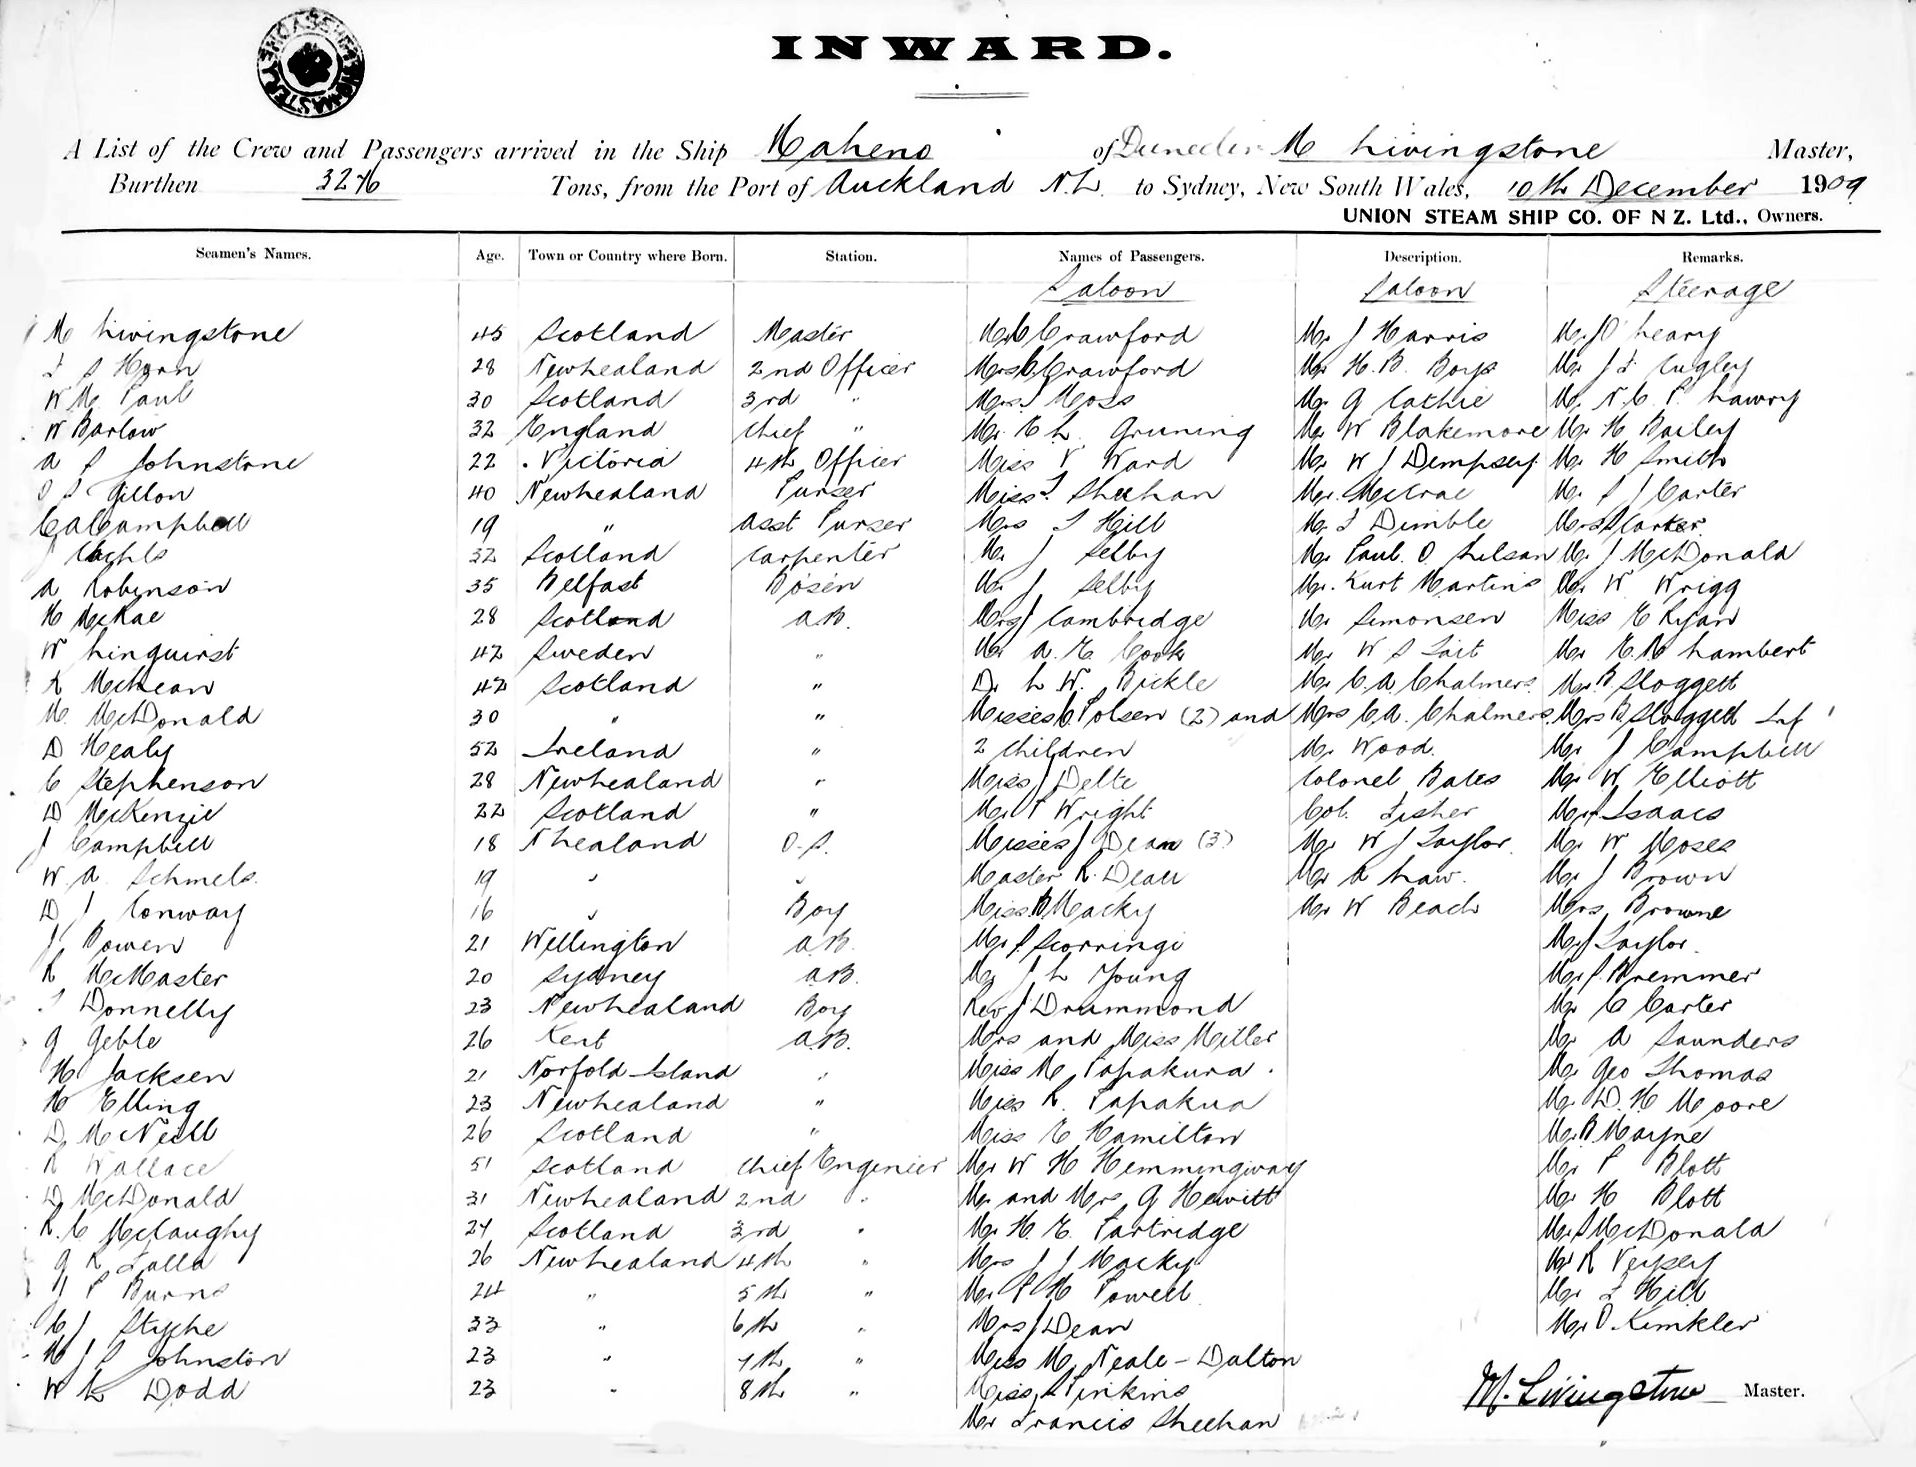 SHIPPING MASTER
INWARD.
A List of the Crew and Passengers arrived in the Ship Maheno of Dunedin M Livingstone Master,
Burthen 3276 Tons, from the Port of Auckland N.Z. to Sydney, New South Wales, 10th December 1909
UNION STEAM SHIP CO. OF N Z. Ltd., Owners.
Seamen's Names. Age. Town or Country where Born. Station. Names of Passengers. Description. Remarks.
Saloon Saloon Steerage
M Livingstone 45 Scotland Master Mr C Crawford Mr J Harris Mr J O'Leary
28 New Zealand 2nd Officer Mrs C Crawford Mr H. B. Boys Mr J
W M Paul 30 Scotland 3rd " Mrs J Moss Mr G Cathie Mr N. C. P. Lawry
W Barlow 32 England Chief " Mr E L. Gruning Mr W Blakemore Mr H Bailey
A S Johnstone 22 Victoria 4th Officer Miss V Ward Mr W J Dempsey Mr H Smith
Gillon 40 New Zealand Purser Miss Sheehan Mr McCrae Mr S J Carter
C A Campbell 19 " Asst Purser Mrs T Hill Mr Dimble Mrs S Carter
J 32 Scotland Carpenter Mr J Selby Mr Paul O Mr J McDonald
A Robinson 35 Belfast Bosen Mr J Selby Mr Kurt Martins Mr W Wrigg
H McRae 28 Scotland A.B. Mrs J Cambridge Mr Simonsen Miss E Ryan
W Linquirst 42 Sweden " Mr A. E. Cook Mr W S Tait Mr E. A Lambert
R McLean 42 Scotland " Dr L W. Bickle Mr C. A. Chalmers Mr B. Sloggett
M McDonald 30 " " Misses C. Polsen (2) and Mrs C. A. Chalmers Mrs B Sloggett Inf
D Healy 52 Ireland " 2 Children Mr Wood. Mr J Campbell
C Stephenson 28 New Zealand " Miss J Colonel Bates Mr W Elliott
D McKenzie 22 Scotland " Mr P Wright Col. Fisher Mr Isaacs
J Campbell 18 N Zealand O.S. Misses J Dean (3) Mr W J Taylor. Mr W Moses
W. A. Schmels. 19 " " Master R. Dean Mr A Law. Mr J Brown
D J Conway 16 " Boy Miss B Macky Mr W Beach Mrs Browne
J Bowen 21 Wellington A.B. Mr S Scorringe Mr J Taylor.
R McMaster 20 Sydney A.B. Mr J L Young Mr J. Bremmer
Donnelly 23 New Zealand Boy Rev J Drummond Mr C Carter
G Geble 26 Kent A.B. Mrs and Miss Miller Mr A Saunders
H Jacksen 21 Norfolk Island " Miss M. Papakura. Mr Geo Thomas
H Elling 23 New Zealand " Miss R. Papakua Mr D. H Moore
D McNeill 26 Scotland " Miss E Hamilton Mr B Mayne
R Wallace 51 Scotland Chief Engineer Mr W H Hemmingway Mr P Blott
D McDonald 31 New Zealand 2nd " Mr and Mrs G Hewitt Mr H Blott
R. C McLaughy 24 Scotland 3rd " Mr H. E. Partridge Mr S McDonald
G R Talla 26 New Zealand 4th " Mrs J J Macky Mr R Veysey
P Burns 24 " 5th " Mr P H Powell Mr T Hill
J Styche 33 " 6th " Mrs J Dean Mr O. Kimkler
H J S Johnston 23 " 7th " Miss M. Neale-Dalton
W L Dodd 23 " 8th " Miss S Pinkins M. Livingstone Master.
Mr Francis Sheehan